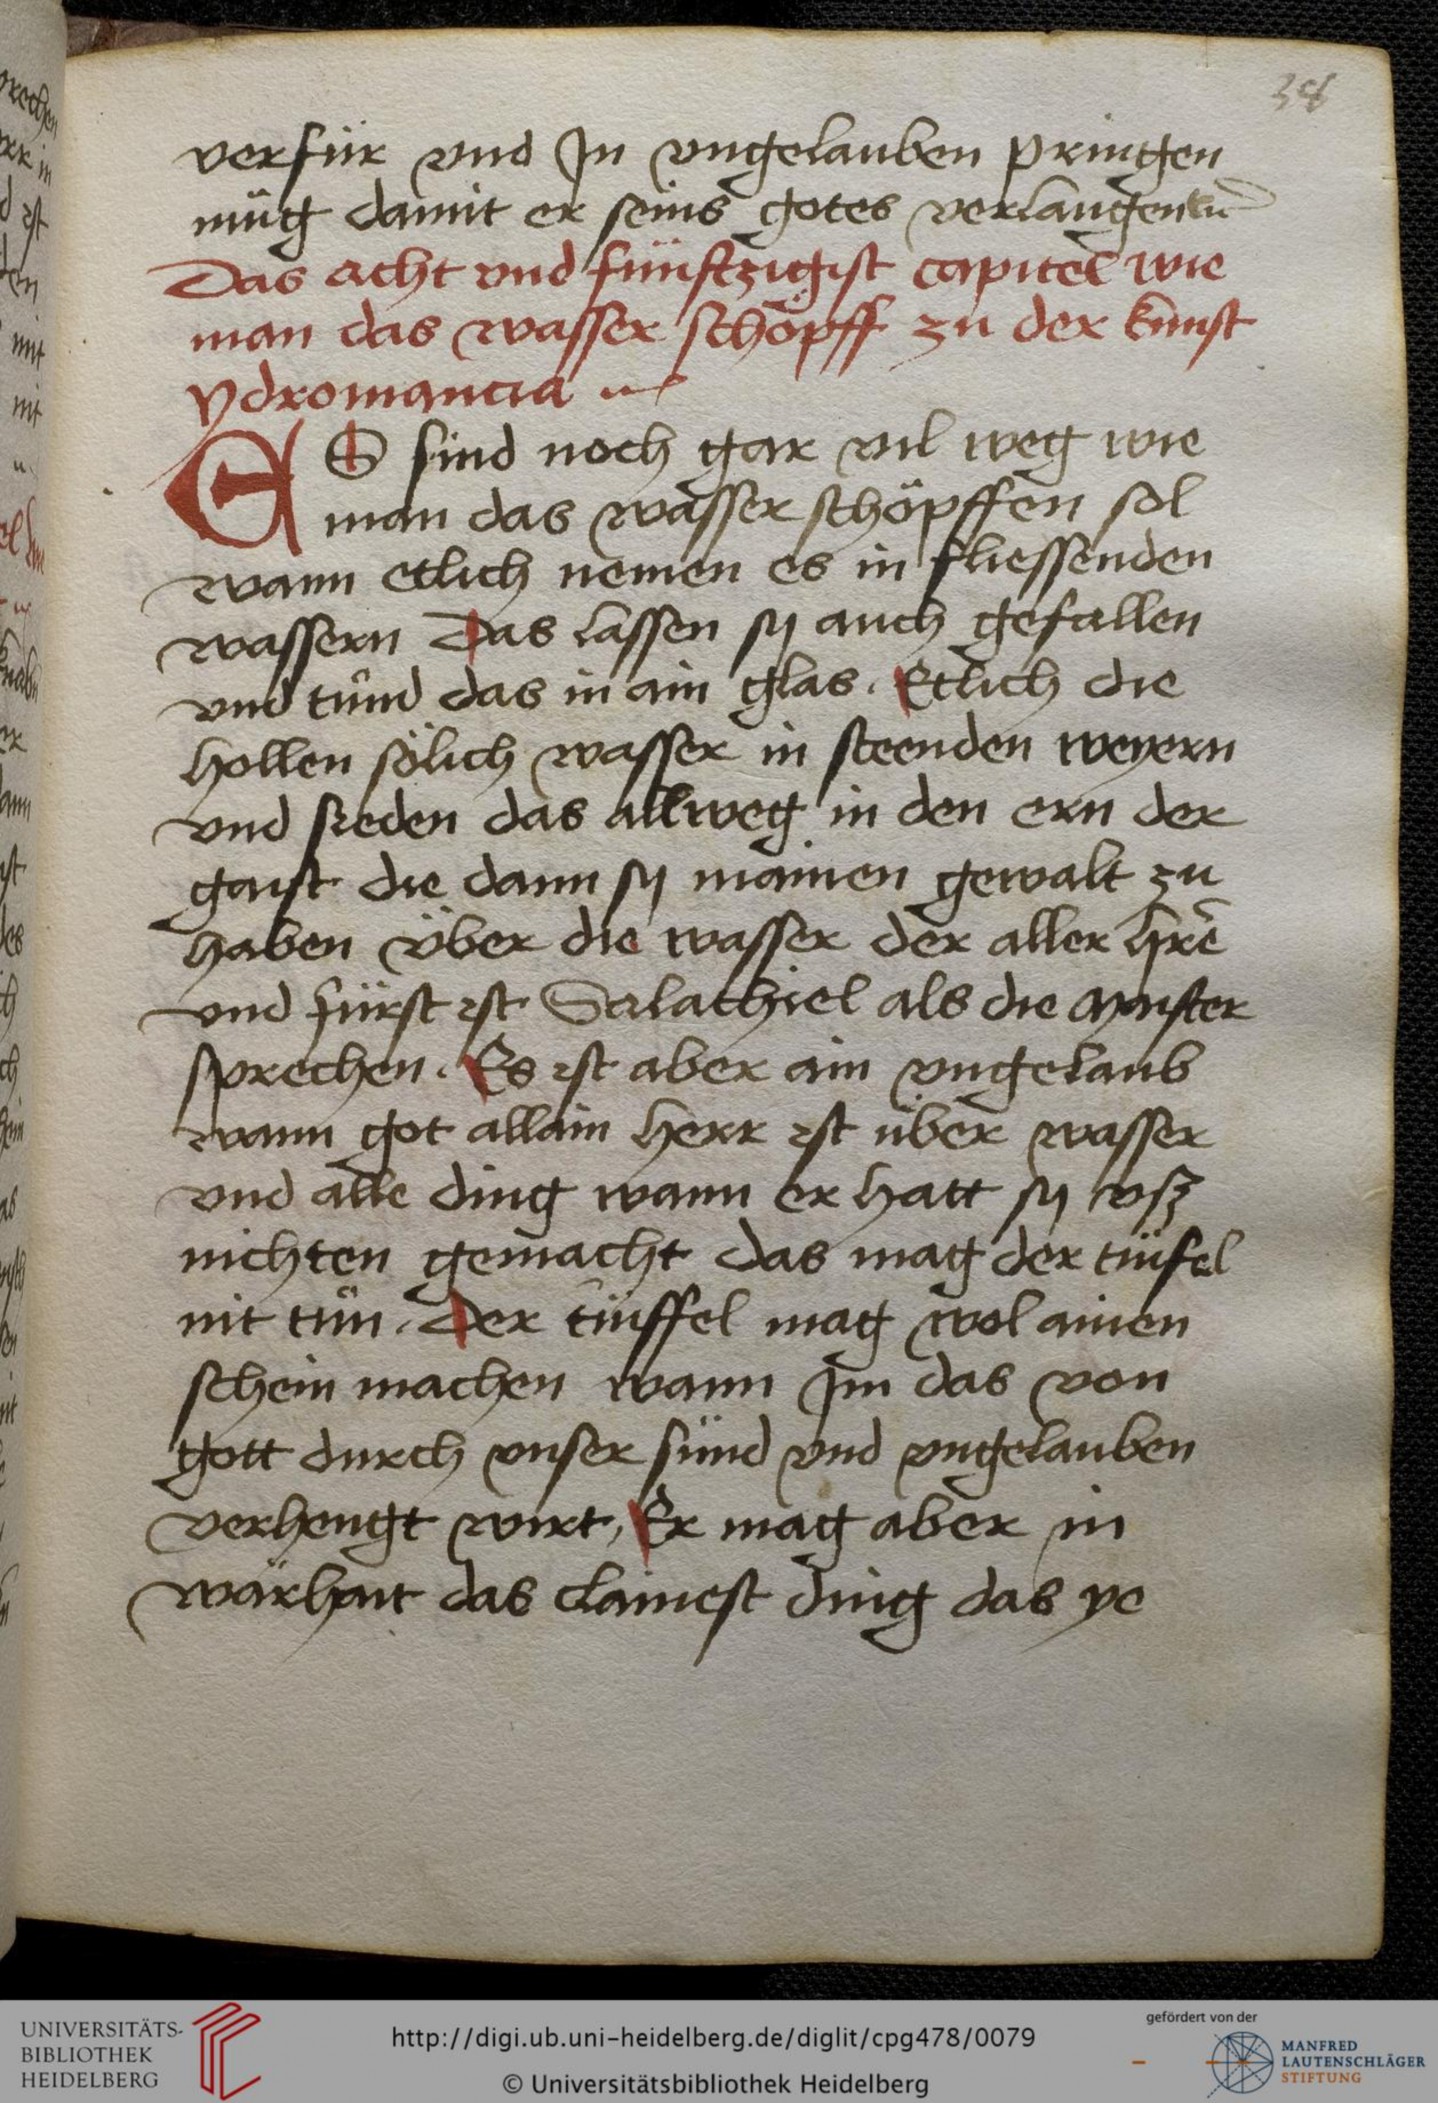 38
verfür vnd Jn vngelauben pringen
müg damit er seins gotes verlaugen
Das acht vnd fünftzigist capitel wie
man das wasser schöpff zu der kunst
ydromancia
ES sind noch gar vil weg wie
man das wasser schöpffen sol
wann etlich nemen es in fliessenden
wassern Das lassen sy auch gefallen
vnd tůnd das in ain glas. Etlich die
hollen sölich wasser in steenden weyern
vnd sieden das allweg in den ern der
gaist die dann sy mainen gewalt zu
haben über die wasser der aller hrē
vnd fürst ist Salathiel als die Maister
sprechen. Es ist aber ain vngelaub
wann got allain herr ist über wasser
vnd alle ding wann er hatt sy vsz
nichten gemacht das mag der tiüfel
nit tůn. Der tiüffel mag wol ainen
schein machen wann Jm das von
gott durch vnser sünd vnd vngelauben
verhengt wirt, Er mag aber in
wärhait das clainest ding das ye
UNIVERSITÄTS-
BIBLIOTHEK
HEIDELBERG
http://digi.ub.uni-heidelberg.de/diglit/cpg478/0079
© Universitätsbibliothek Heidelberg
gefördert von der
MANFRED
LAUTENSCHLÄGER
STIFTUNG